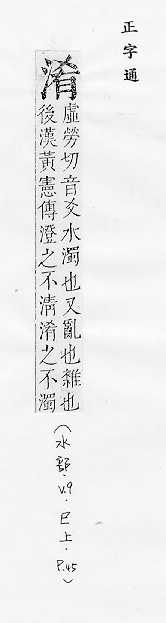 正字通
淆
虛勞切音爻水濁也又亂也雜也
後漢黃憲傳澄之不清淆之不濁
(水部.V.9.巳上.P.45)